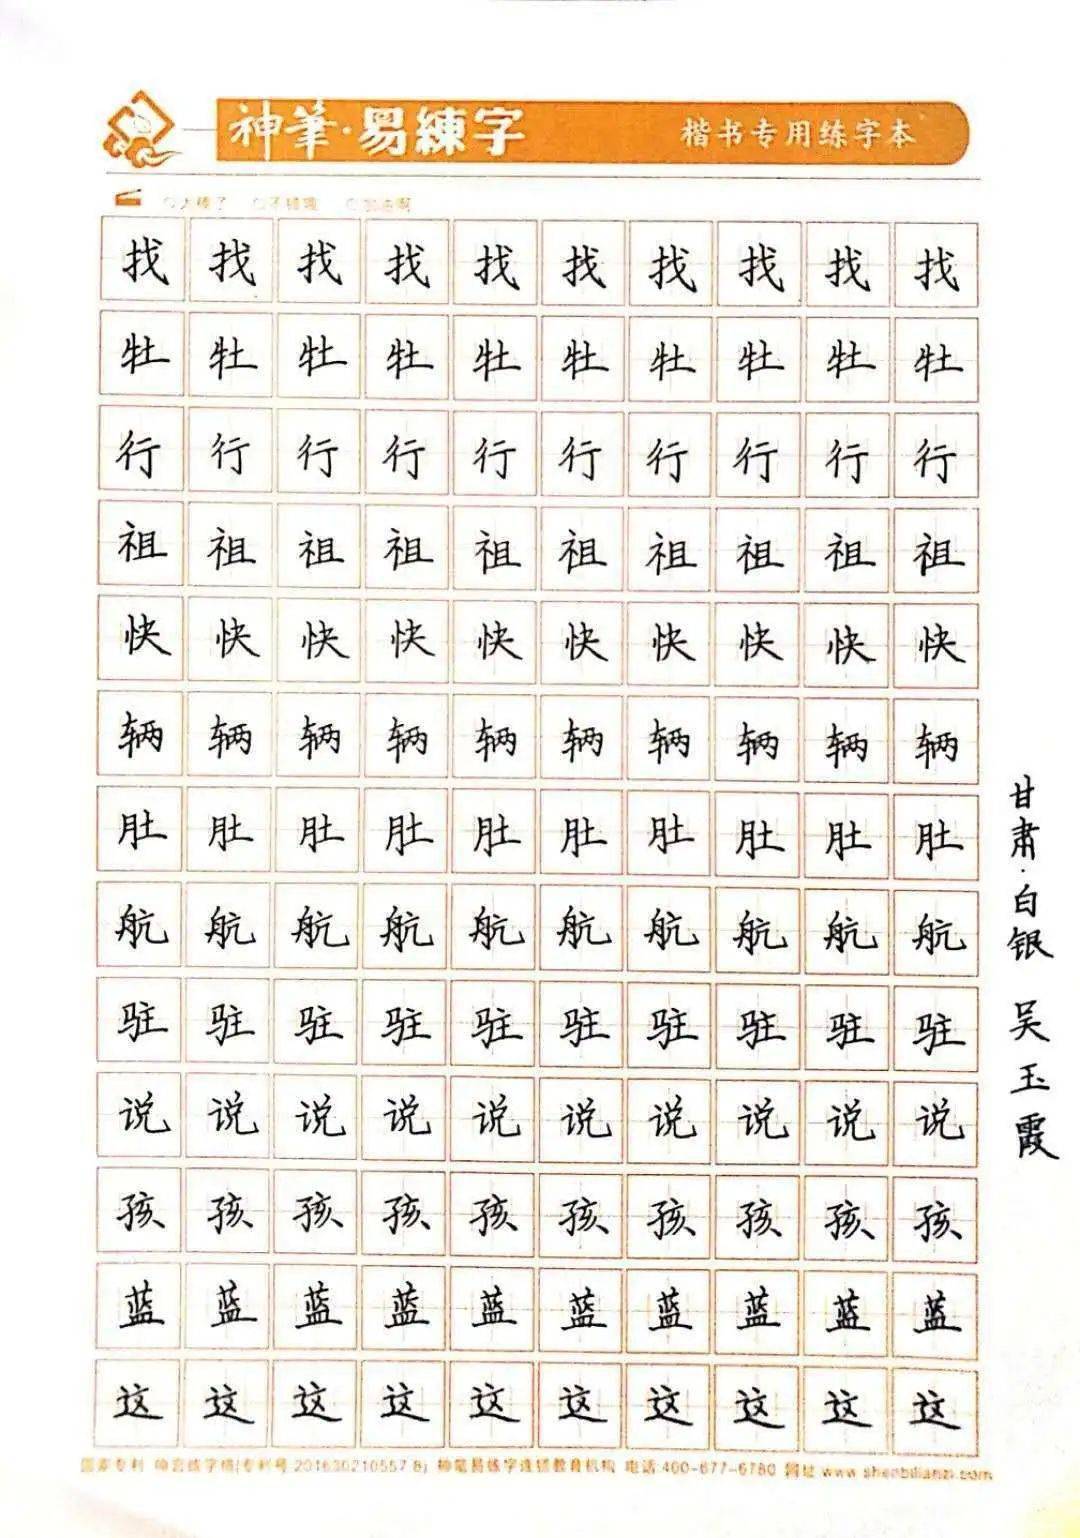 神筆·易練字
楷书专用练字本
太棒了 不错哦 加油啊
找 找 找 找 找 找 找 找 找 找
牡 牡 牡 牡 牡 牡 牡 牡 牡 牡
行 行 行 行 行 行 行 行 行 行
祖 祖 祖 祖 祖 祖 祖 祖 祖 祖
快 快 快 快 快 快 快 快 快 快
辆 辆 辆 辆 辆 辆 辆 辆 辆 辆
肚 肚 肚 肚 肚 肚 肚 肚 肚 肚
航 航 航 航 航 航 航 航 航 航
驻 驻 驻 驻 驻 驻 驻 驻 驻 驻
说 说 说 说 说 说 说 说 说 说
孩 孩 孩 孩 孩 孩 孩 孩 孩 孩
蓝 蓝 蓝 蓝 蓝 蓝 蓝 蓝 蓝 蓝
这 这 这 这 这 这 这 这 这 这
甘肃·白银 吴玉霞
国家专利 练字格(专利号:201630210557.8) 神笔易练字连锁教育机构 电话:400-677-6780 网址 www.shenbilianzi.com